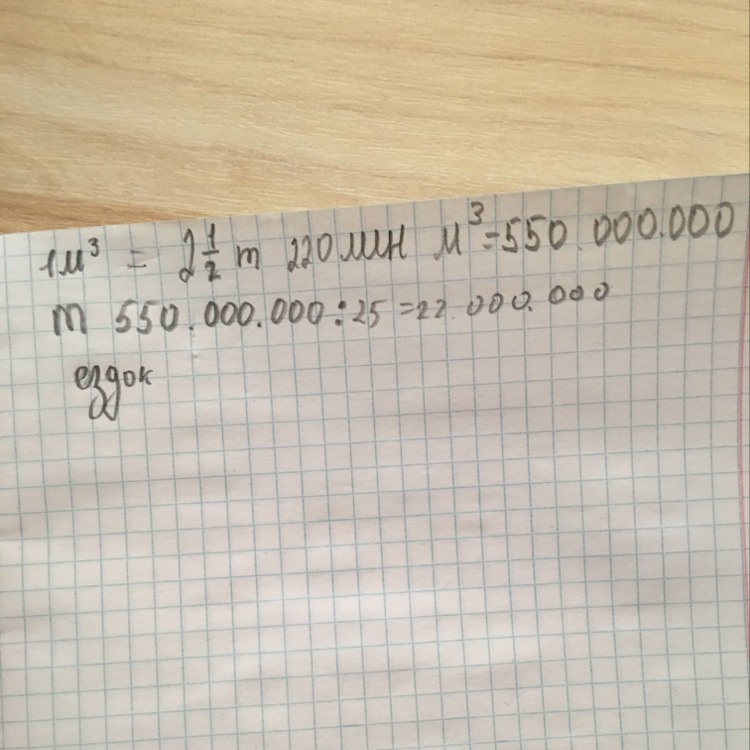 1м³ = 2 1/2 т 220 млн м³=550.000.000
т 550.000.000:25=22.000.000
ездок